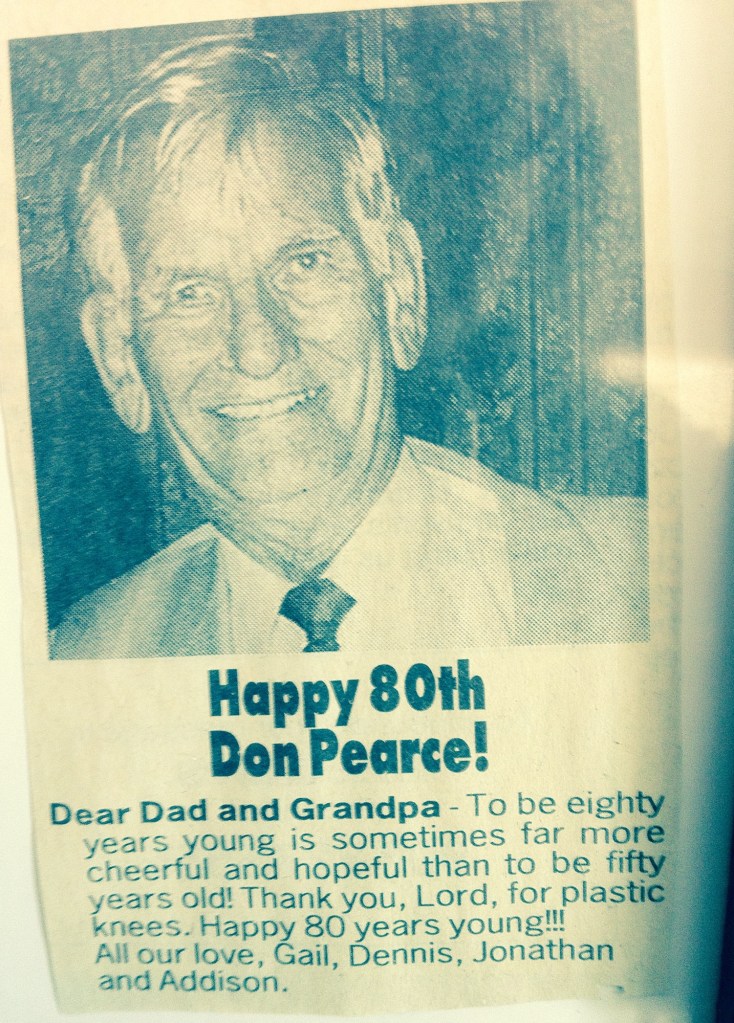 Happy 80th
Don Pearce!
Dear Dad and Grandpa - To be eighty
years young is sometimes far more
cheerful and hopeful than to be fifty
years old! Thank you, Lord, for plastic
knees. Happy 80 years young!!!
All our love, Gail, Dennis, Jonathan
and Addison.